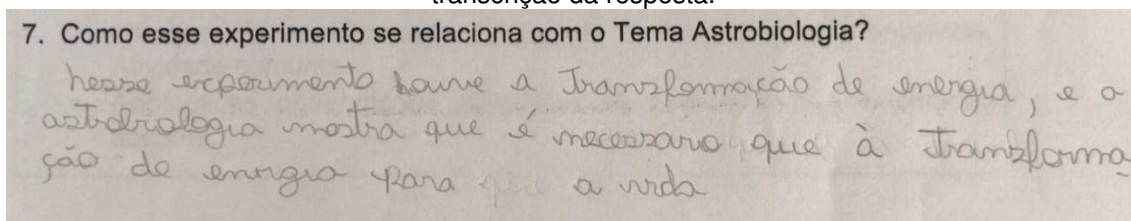 transcrição da resposta.
7. Como esse experimento se relaciona com o Tema Astrobiologia?
nesse experimento houve a Transformação de energia, e a
astrobiologia mostra que é necessario que à Transforma
ção de energia para a vida